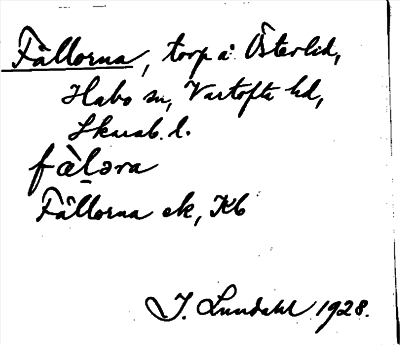 Fällorna, torp å Österlid,
Habo sn, Vartofta hd,
Skarab. l.
fàl̠əra
Fällorna ek, Kb
I. Lundahl 1928.